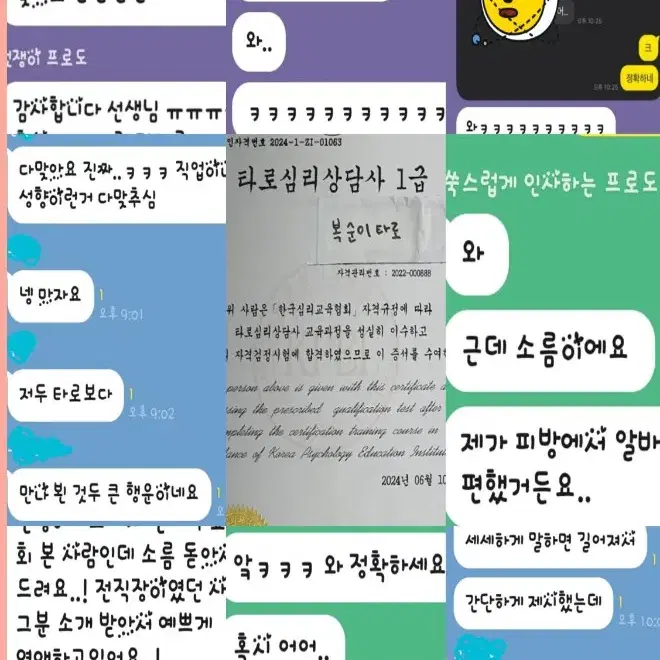 와..
ㅋㅋㅋㅋㅋㅋㅋㅋㅋㅋㅋ
프로도
감사합니다 선생님 ㅠㅠㅠ
오후 10:25
크
정확하네
오후 10:25
와ㅋㅋㅋㅋㅋㅋㅋㅋㅋㅋ
다맞아요 진짜..ㅋㅋㅋ
성향이런거 다맞추심
넹 맞자요
1
오후 9:01
저두 타로보다
1
오후 9:02
만나 뵌 것두 큰 행운이네요
1
2024-1-ZI-01063
타로심리상담사 1급
복순이타로
자격관리번호 : 2022-000888
위 사람은 「한국심리교육협회」 자격규정에 따라
타로심리상담사 교육과정을 성실히 이수하고
자격검정시험에 합격하였으므로 이 증서를
person above is given with this certificate
the prescribed qualification test after
the certification training course in
of Korea Psychology Education
2024년 06월
쑥스럽게 인사하는 프로도
와
근데 소름이에요
제가 피방에서
편했거든요..
회 본 사람인데 소름
드려요..! 전직장이였던
그분 소개 받아서 예쁘게
악ㅋㅋㅋ 와 정확하세요
혹시 어어..
세세하게 말하면 길어져서
1
간단하게 제시했는데
1